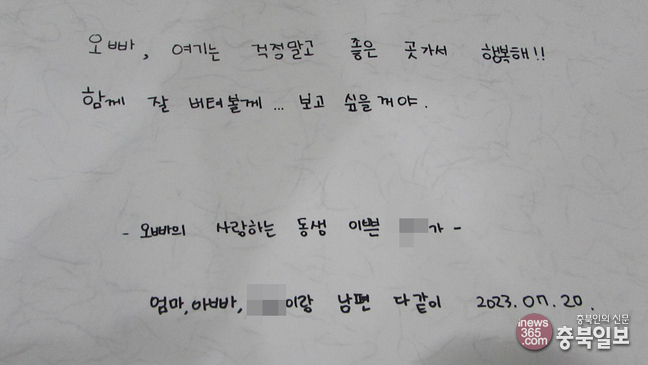 오빠, 여기는 걱정말고 좋은 곳가서 행복해!!
함께 잘 버텨볼게... 보고 싶을거야.
- 오빠의 사랑하는 동생 이쁜 가 -
엄마, 아빠, 이랑 남편 다같이 2023.07.20.
inews365.com
충북인의 신문
충북일보